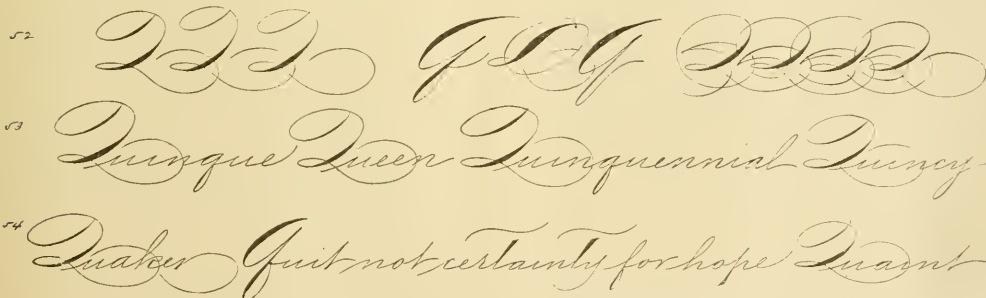 52 Q Q Q Q Q Q Q Q Q Q
53 Quinque Queen Quinquennial Quincy
54 Quaker Quit not certainty for hope Quaint